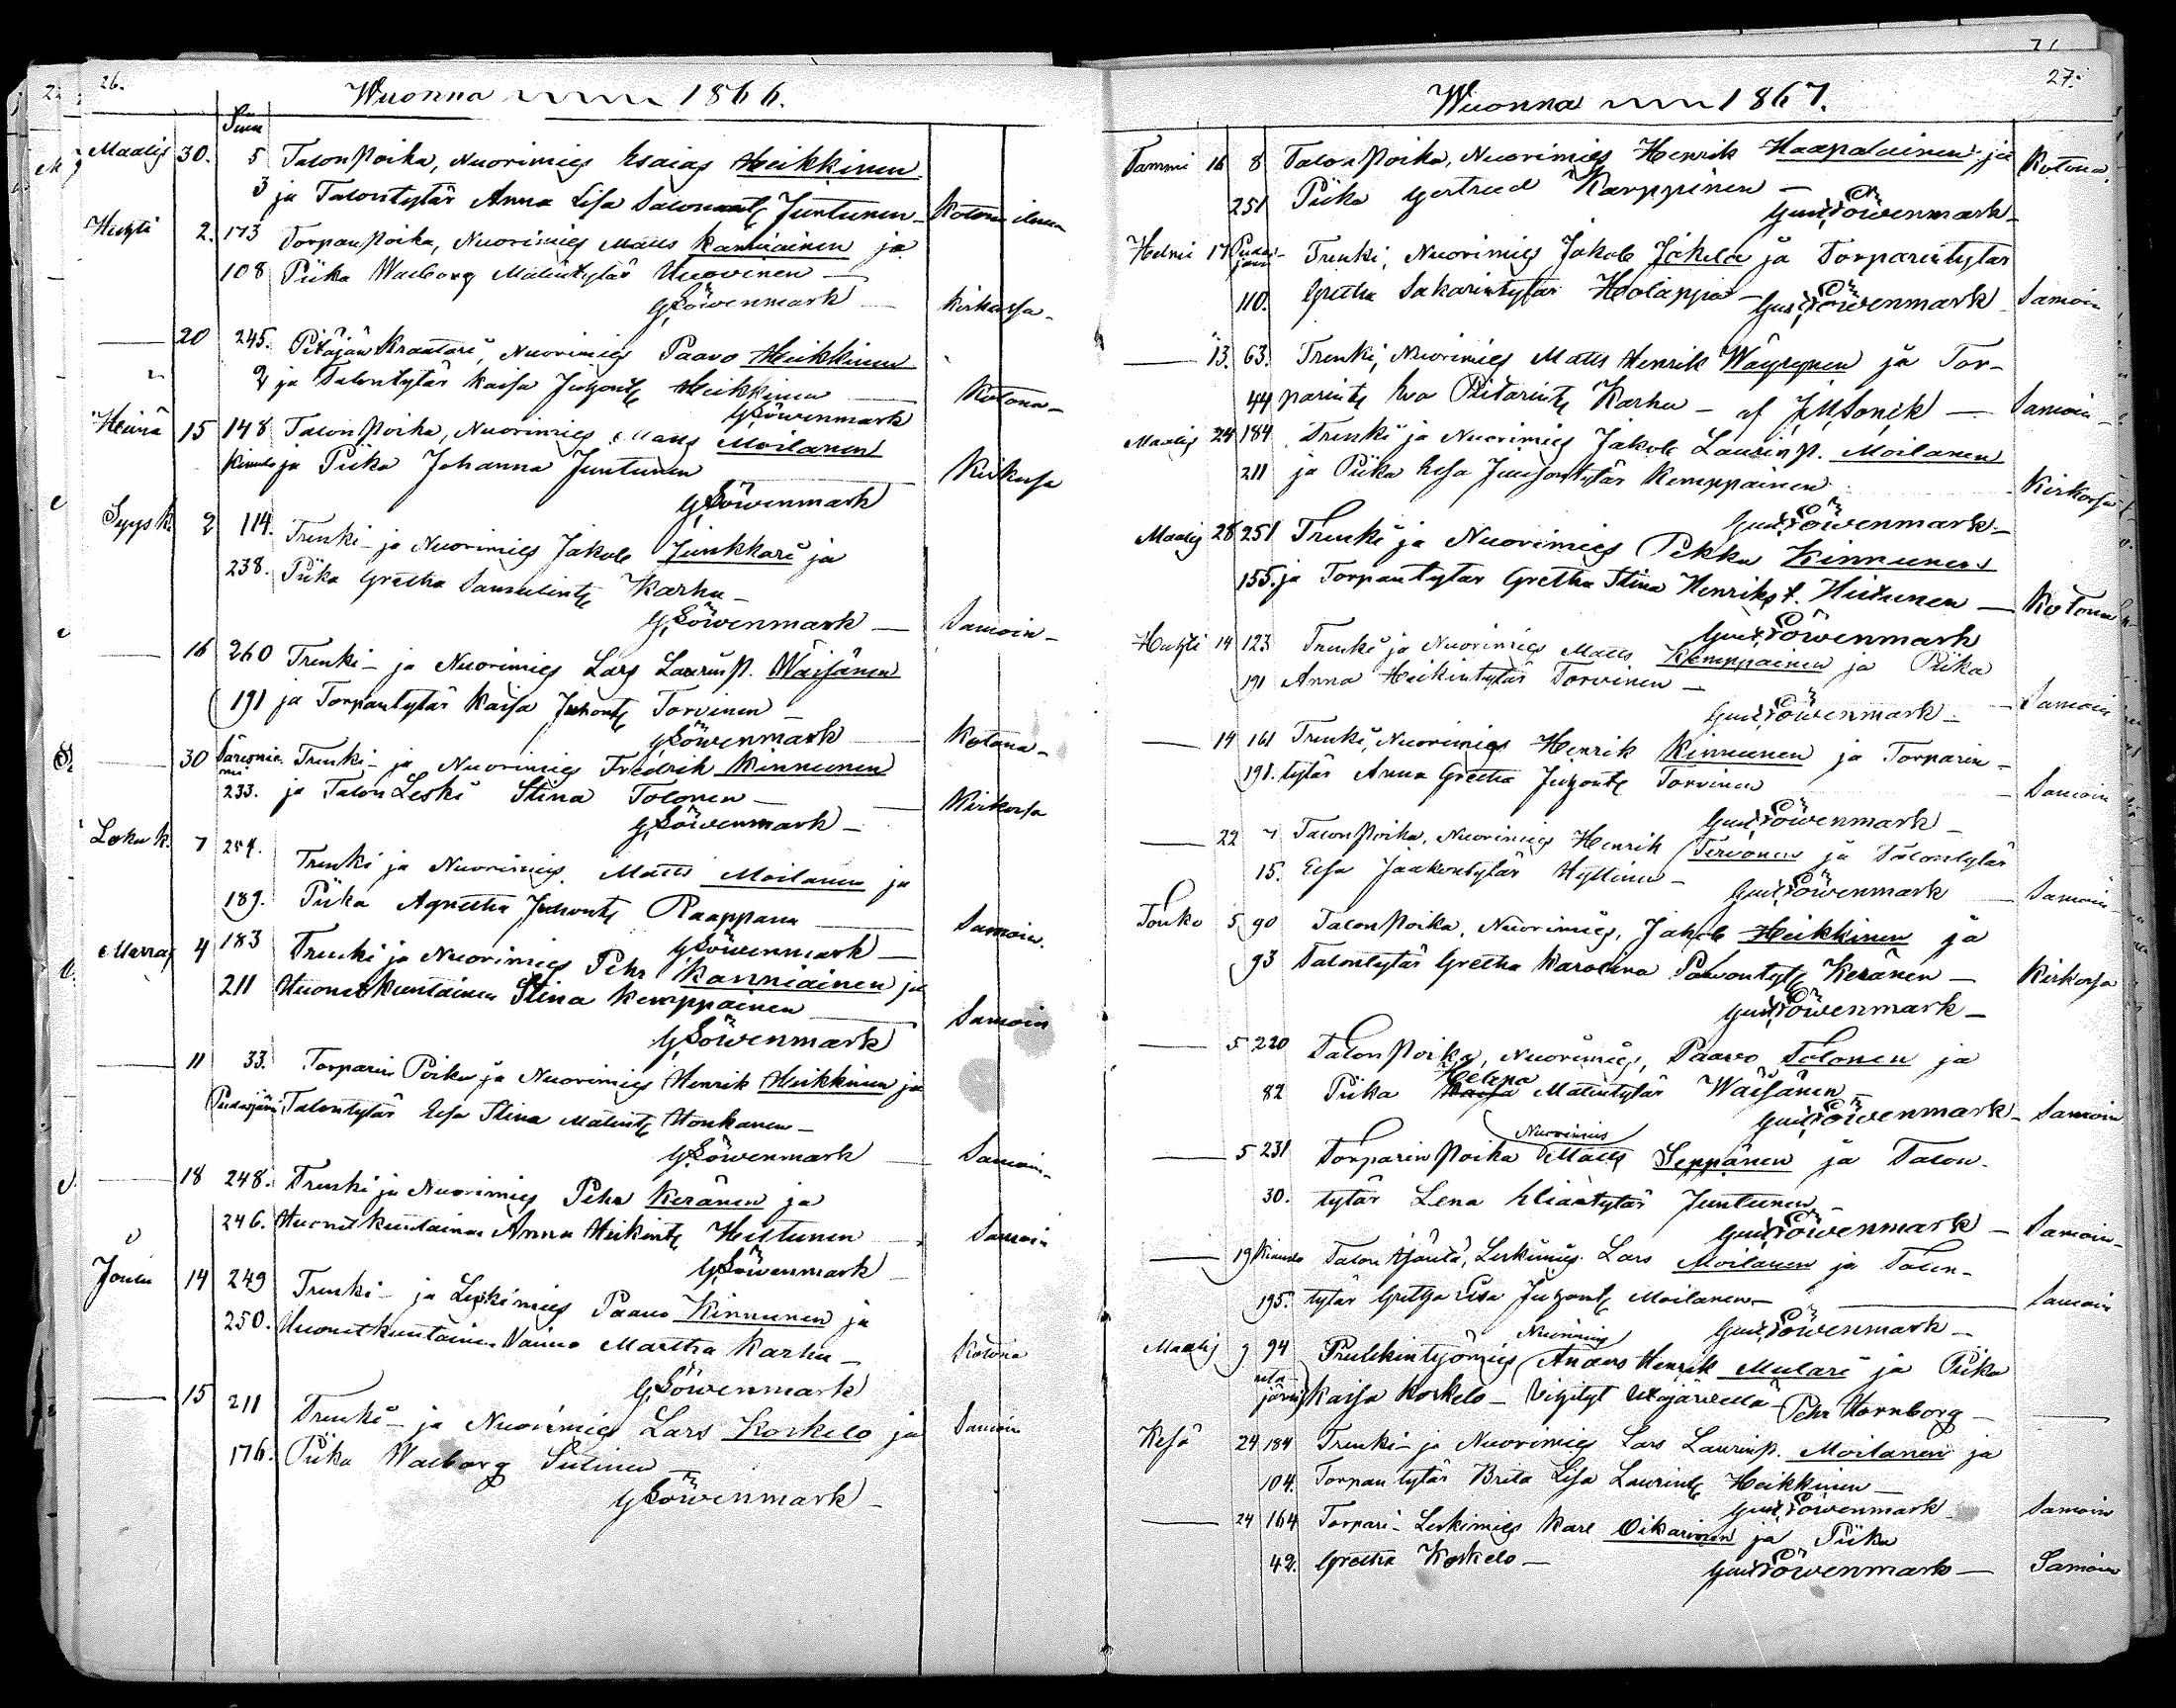 26.
Wuonna 1866.
Maalis 30. 5 Talon Poika, Nuorimies Esaias Heikkinen
3 ja Talontytär Anna Lisa Salomonts Juntunen - Kotona ilman
Huhti 2. 173 Torpan Poika, Nuorimies Matts Kanniainen ja
108 Piika Walborg Matintytär Huovinen —
G Löwenmark — Kirkossa -
— 20 245. Pitäjän Kraatari, Nuorimies Paavo Heikkinen
2 ja Talontytär Kaisa Juhonts Heikkinen — Kotona -
G Löwenmark
Heinä 15 148 Talon Poika, Nuorimies Matts Moilanen
Kianda ja Piika Johanna Juntunen — Kirkossa
G Löwenmark
Syys k. 2 114. Trenki - ja Nuorimies Jakob Junkkari ja
238. Piika Gretha Samulints Karhu -
G Löwenmark — Samoin -
— 16 260 Trenki - ja Nuorimies Lars Laurinp. Wäisänen
191 ja Torpantytär Kaisa Juhonts Torvinen —
G Löwenmark — Kotona -
— 30 Säresnie- Trenki - ja Nuorimies Fredrik Kinnunen
mi
233. ja Talon Leski Stina Tolonen — Kirkossa
G Löwenmark -
Loka k. 7 254. Trenki ja Nuorimies Matts Moilanen ja
189. Piika Agnetha Juhonts Raappana — Samoin.
G Löwenmark —
Marras 4 183 Trenki ja Nuorimies Pehr Kanniainen ja
211 Huonetkuntainen Stina Kemppainen — Samoin
G Löwenmark
— 11 33. Torparin Poika ja Nuorimies Henrik Heikkinen ja
Pudasjärvi Talontytär Elsa Stina Matints Honkanen -
G Löwenmark — Samoin -
— 18 248. Trenki ja Nuorimies Pehr Keränen ja
246. Huonetkuntainen Anna Heikints Heittunen — Samoin
G Löwenmark
Joulu 14 249 Trenki - ja Leskimies Paavo Kinnunen ja
250. Huonetkuntainen Vaimo Martha Karhu — Kotona
G Löwenmark
— 15 211 Trenki - ja Nuorimies Lars Korkelo ja Samoin
176. Piika Walborg Sutinen —
G Löwenmark -
27.
Wuonna 1867.
Tammi 16 8 Talon Poika, Nuorimies Henrik Haapalainen ja Kotona.
251 Piika Gertrud Karppinen —
Gust Löwenmark -
Helmi 17 Pudas- Trenki, Nuorimies Jakob Jakela ja Torparintytär
järvi
110. Gretha Sakarintytär Holappa - Gust Löwenmark - Samoin
— 13. 63. Trenki, Nuorimies Matts Henrik Wäyrynen ja Tor-
44 parints Eva Pietarints Karhu - af J,M,Sonck — Samoin -
Maalis 24 184 Trenki ja Nuorimies Jakob Laurinp. Moilanen
211 ja Piika Elsa Juhontytär Kemppainen — Kirkossa
Gust Löwenmark -
Maalis 28 251 Trenki ja Nuorimies Pekka Kinnunen
155. ja Torpantytär Gretha Stina Henriks t. Hiitunen — Kotona
Gust Löwenmark
Huhti 14 123 Trenki ja Nuorimies Matts Kemppainen ja Piika
191 Anna Heikintytär Torvinen — Samoin
Gust Löwenmark -
— 14 161 Trenki, Nuorimies Henrik Kinnunen ja Torparin -
191. tytär Anna Gretha Juhonts Torvinen Samoin
Gust Löwenmark -
— 22 7 Talon Poika, Nuorimies Henrik Tervonen ja Talontytär
15. Elsa Jaakontytär Hyttinen — Gust Löwenmark — Samoin
Touko 5 90 Talon Poika, Nuorimies, Jakob Heikkinen ja
93 Talontytär Gretha Karolina Paavontyts Keränen — Kirkossa
Gust Löwenmark -
— 5 220 Talon Poika, Nuorimies, Paavo Tolonen ja
Helena
82 Piika Kaisa Matintytär Wäisänen —
Gust Löwenmark - Samoin
Nuorimies
— 5 231 Torparin Poika Matts Seppänen ja Talon-
30. tytär Lena Eliaantytär Juntunen —
Gust Löwenmark — Samoin -
— 19 Kianda Talon Isäntä, Leskimies Lars Moilanen ja Talon-
195. tytär Gretha Lisa Juhonts Moilanen — Samoin
Gust Löwenmark -
Nuorimies
Maalis 9 94 Prulkintyömies Anders Henrik Mulari ja Piika
Uta-
järvi Kaisa Korkelo - Vihityt Utajärvellä - Pehr Hornborg — —
Kesä 24 184 Trenki - ja Nuorimies Lars Laurinp. Moilanen ja
104. Torpantytär Brita Lisa Laurints Heikkinen —
Gust Löwenmark - Samoin
— 24 164 Torpari - Leskimies Karl Oikarinen ja Piika
42. Gretha Korkelo —
Gust Löwenmark — Samoin